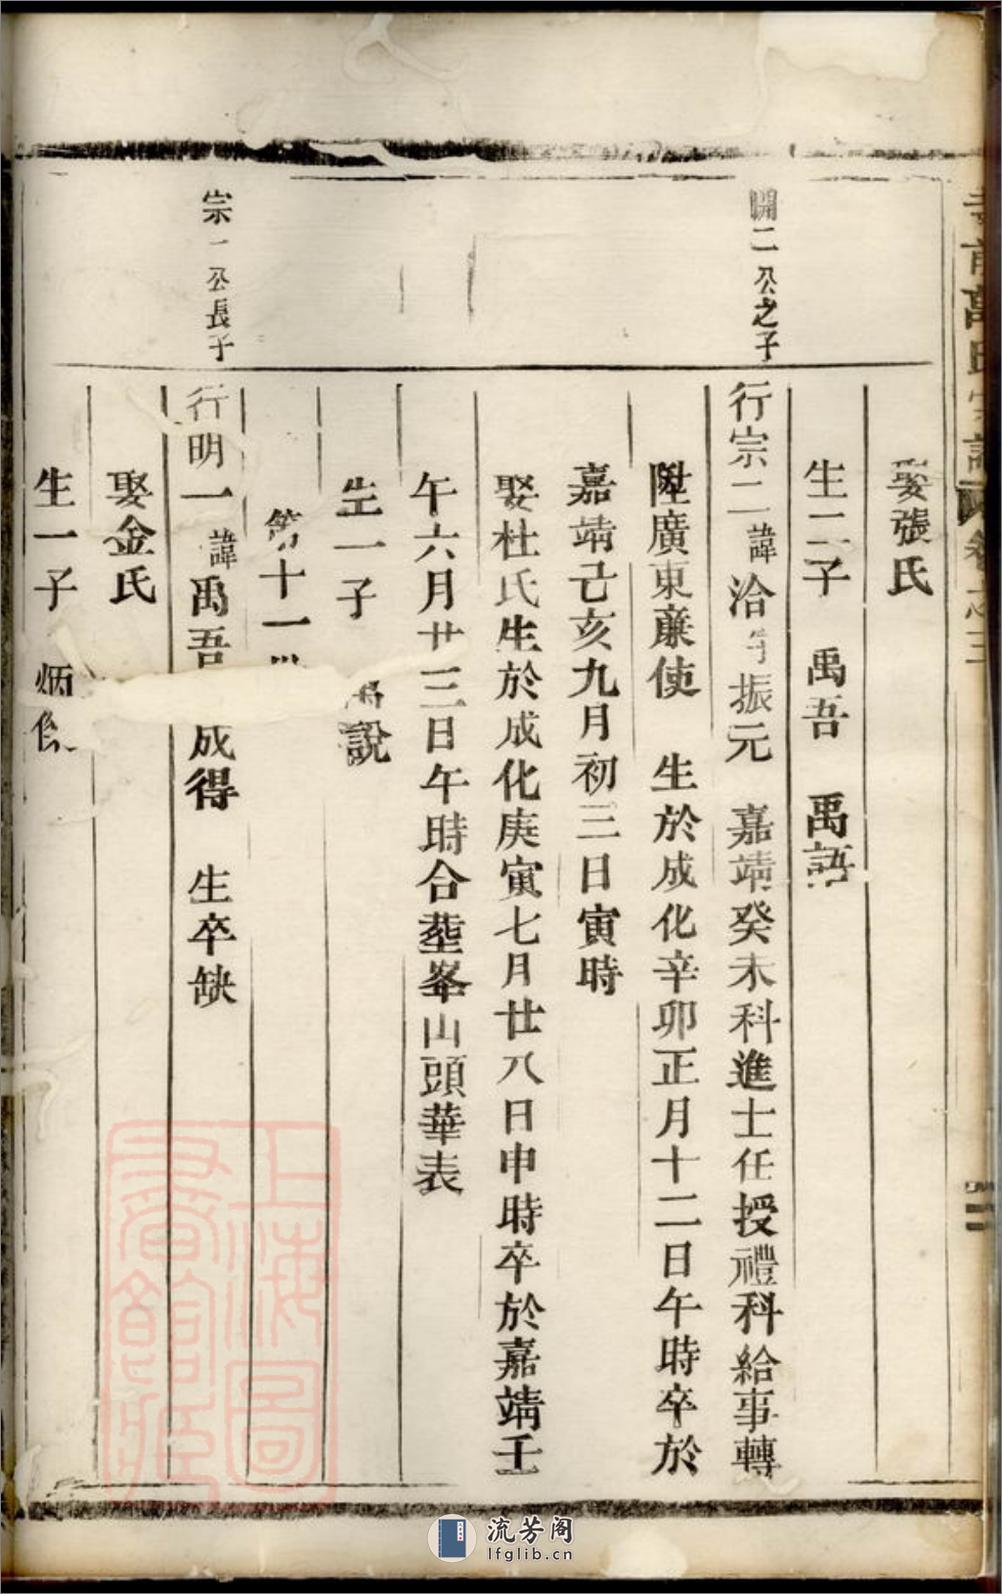 娶張氏
生二子 禹吾 禹語
開二公之子
行宗二諱洽字振元 嘉靖癸未科進士任授禮科給事轉
陞廣東廉使 生於成化辛卯正月十二日午時卒於
嘉靖己亥九月初三日寅時
娶杜氏生於成化庚寅七月廿八日申時卒於嘉靖壬
午六月廿三日午時合塟峯山頭華表
生一子 說
第十一
宗一公長子
行明一諱禹吾 成得 生卒缺
娶金氏
生一子 炳
上海圖書館藏
流芳阁
lfglib.cn